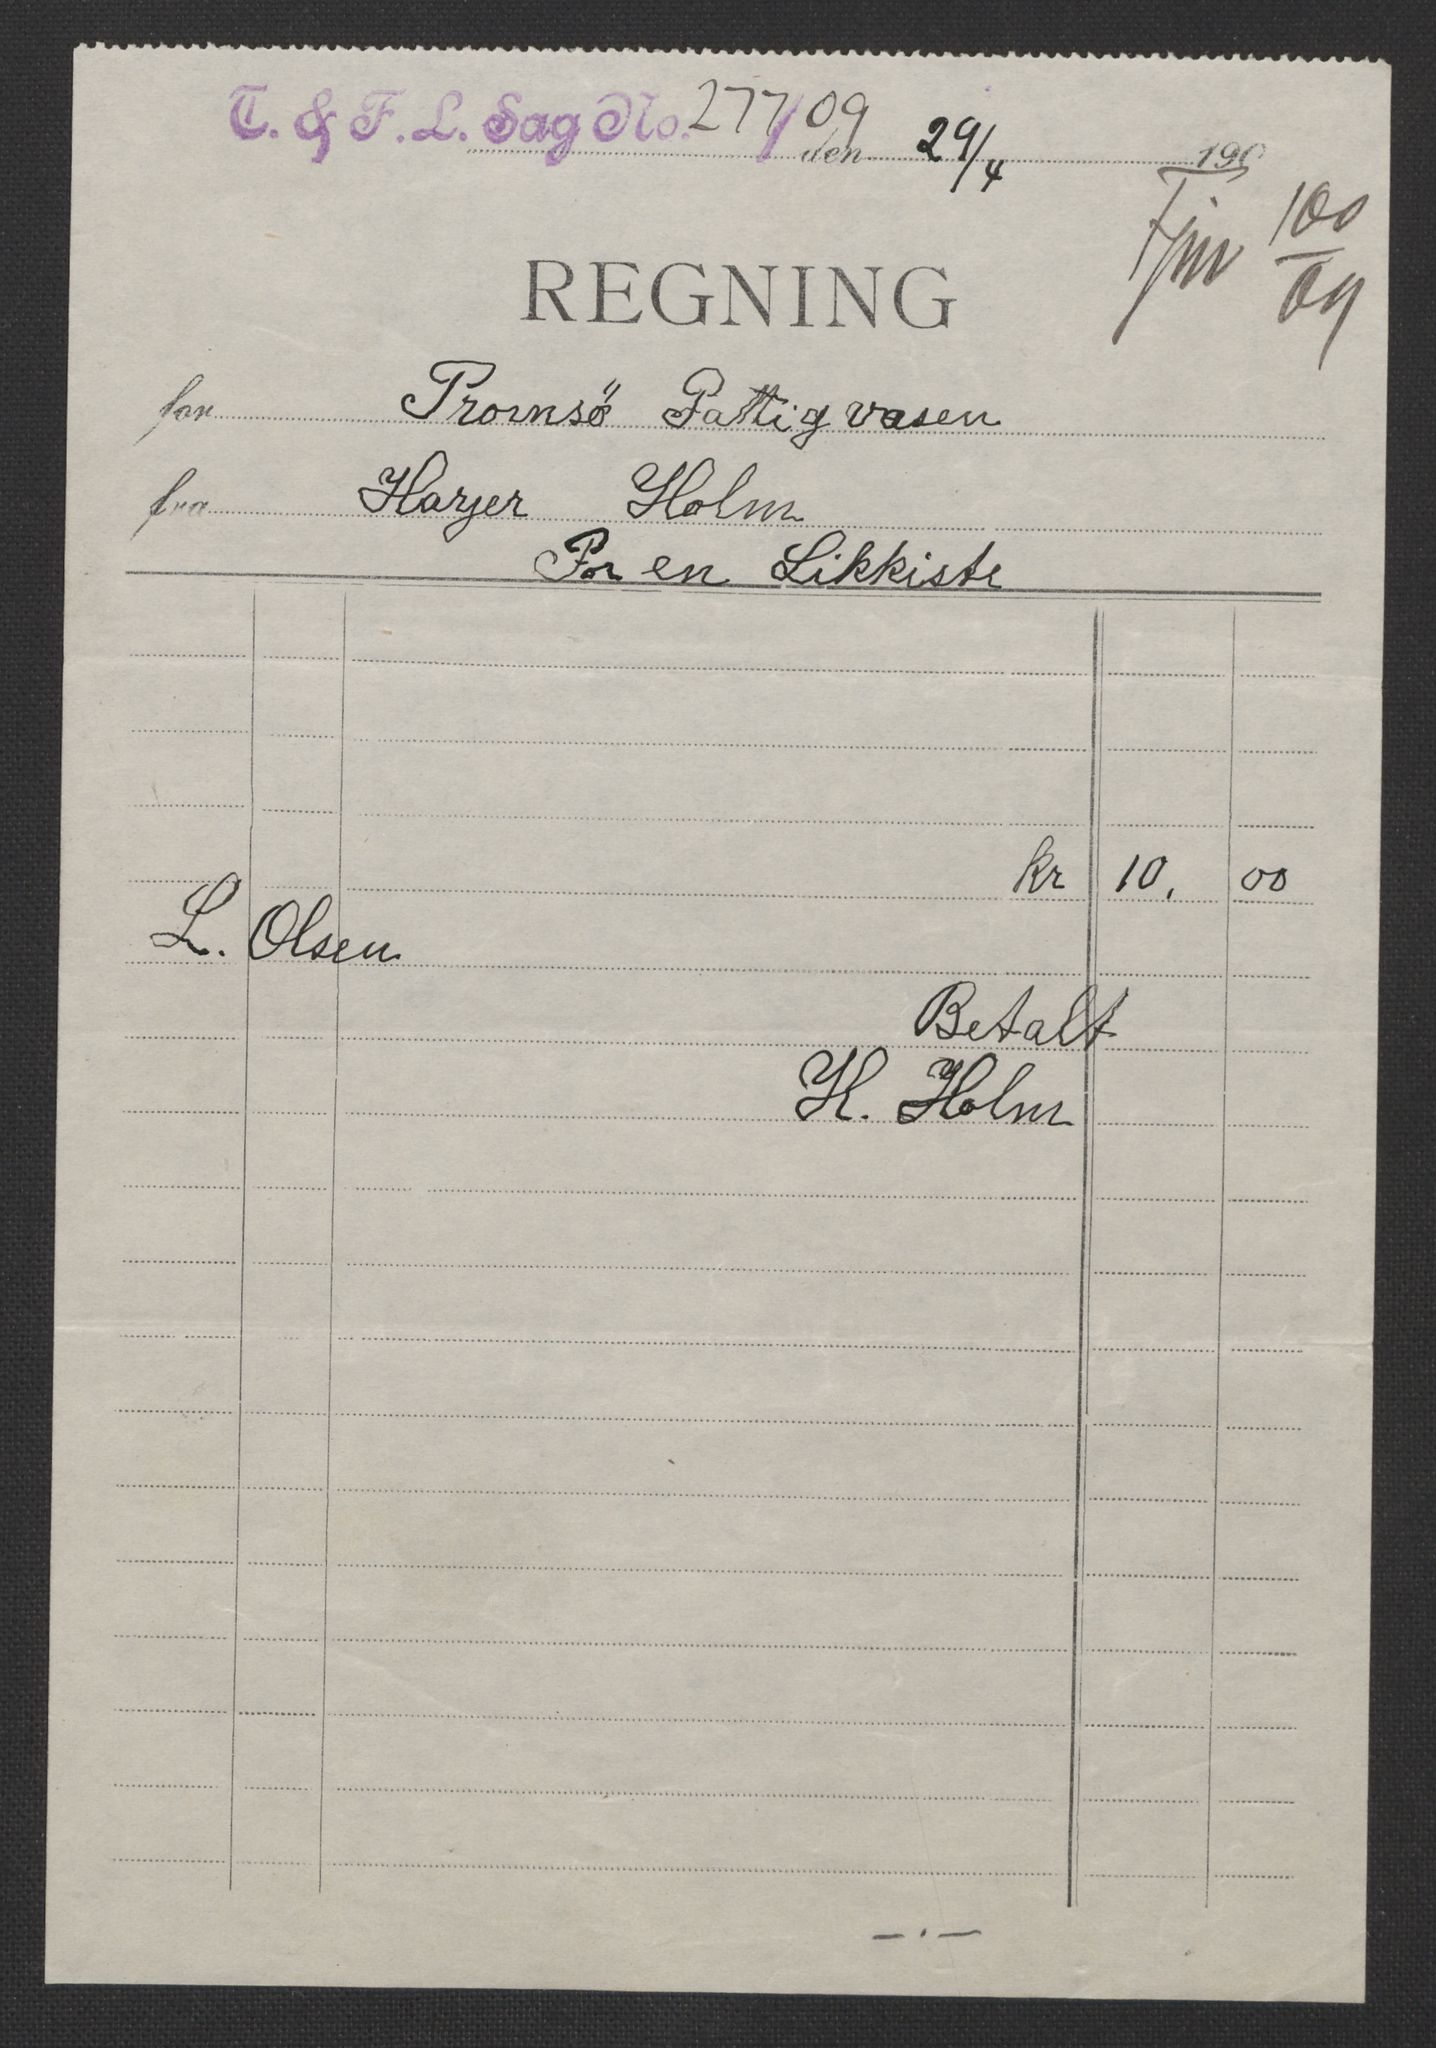 T. & F. L. Sag No. 277/09
den 29/4 190
Fin 100/09
REGNING
for Tromsö Fattigvæsen
fra Harjer Holm
For en Likkiste
kr 10. 00
L. Olsen
Betalt
H. Holm